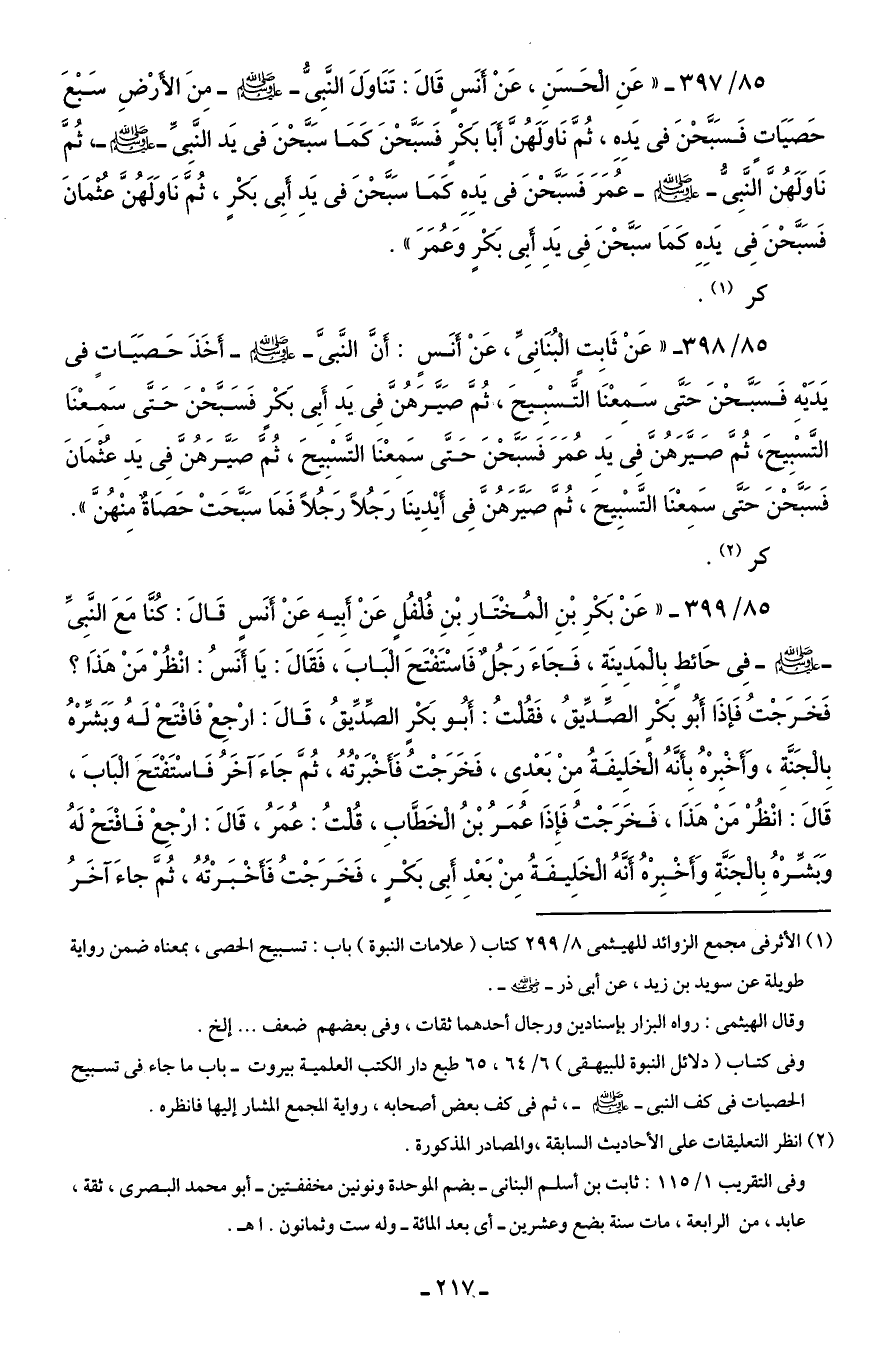 ٣٩٧/٨٥ ـ « عَنِ الْحَسَنِ ، عَنْ أَنَسٍ قَالَ : تَنَاوَلَ النَّبِىُّ ـ ﷺ ـ مِنَ الأَرْضِ سَبْعَ
حَصَيَاتٍ فَسَبَّحْنَ فِى يَدِهِ ، ثُمَّ نَاوَلَهُنَّ أَبَا بَكْرٍ فَسَبَّحْنَ كَمَا سَبَّحْنَ فِى يَدِ النَّبِىِّ ـ ﷺ ـ، ثُمَّ
نَاوَلَهُنَّ النَّبِىُّ ـ ﷺ ـ عُمَرَ فَسَبَّحْنَ فِى يَدِهِ كَمَا سَبَّحْنَ فِى يَدِ أَبِى بَكْرٍ ، ثُمَّ نَاوَلَهُنَّ عُثْمَانَ
فَسَبَّحْنَ فِى يَدِهِ كَمَا سَبَّحْنَ فِى يَدِ أَبِى بَكْرٍ وَعُمَرَ » .
كر (١) .
٣٩٨/٨٥ـ « عَنْ ثَابِتٍ الْبُنَانِىِّ ، عَنْ أَنَسٍ : أَنَّ النَّبِىَّ ـ ﷺ ـ أَخَذَ حَصَيَاتٍ فِى
يَدَيْهِ فَسَبَّحْنَ حَتَّى سَمِعْنَا التَّسْبِيحَ ، ثُمَّ صَيَّرَهُنَّ فِى يَدِ أَبِى بَكْرٍ فَسَبَّحْنَ حَتَّى سَمِعْنَا
التَّسْبِيحَ، ثُمَّ صَيَّرَهُنَّ فِى يَدِ عُمَرَ فَسَبَّحْنَ حَتَّى سَمِعْنَا التَّسْبِيحَ ، ثُمَّ صَيَّرَهُنَّ فِى يَدِ عُثْمَانَ
فَسَبَّحْنَ حَتَّى سَمِعْنَا التَّسْبِيحَ ، ثُمَّ صَيَّرَهُنَّ فِى أَيْدِينَا رَجُلاً رَجُلاً فَمَا سَبَّحَتْ حَصَاةٌ مِنْهُنَّ ».
كر (٢) .
٣٩٩/٨٥ ـ « عَنْ بَكْرِ بْنِ الْمُخْتَارِ بْنِ فُلْفُلٍ عَنْ أَبِيهِ عَنْ أَنَسٍ قَالَ : كُنَّا مَعَ النَّبِىِّ
ـ ﷺ ـ فِى حَائِطٍ بِالْمَدِينَةِ ، فَجَاءَ رَجُلٌ فَاسْتَفْتَحَ الْبَابَ ، فَقَالَ : يَا أَنَسُ : انْظُرْ مَنْ هَذَا ؟
فَخَرَجْتُ فَإِذَا أَبُو بَكْرٍ الصِّدِّيقُ ، فَقُلْتُ : أَبُو بَكْرٍ الصِّدِّيقُ ، قَالَ : ارْجِعْ فَافْتَحْ لَهُ وَبَشِّرْهُ
بِالْجَنَّةِ ، وَأَخْبِرْهُ بِأَنَّهُ الْخَلِيفَةُ مِنْ بَعْدِى ، فَخَرَجْتُ فَأَخْبَرْتُهُ ، ثُمَّ جَاءَ آخَرُ فَاسْتَفْتَحَ الْبَابَ ،
قَالَ : انْظُرْ مَنْ هَذَا ، فَخَرَجْتُ فَإِذَا عُمَرُ بْنُ الْخَطَّابِ ، قُلْتُ : عُمَرُ ، قَالَ : ارْجِعْ فَافْتَحْ لَهُ
وَبَشِّرْهُ بِالْجَنَّةِ وَأَخْبِرْهُ أَنَّهُ الْخَلِيفَةُ مِنْ بَعْدِ أَبِى بَكْرٍ ، فَخَرَجْتُ فَأَخْبَرْتُهُ ، ثُمَّ جَاءَ آخَرُ
(١) الأثر فى مجمع الزوائد للهيثمى ٨/ ٢٩٩ كتاب ( علامات النبوة ) باب : تسبيح الحصى ، بمعناه ضمن رواية
طويلة عن سويد بن زيد ، عن أبى ذر ـ رضي الله عنه ـ .
وقال الهيثمى : رواه البزار بإسنادين ورجال أحدهما ثقات ، وفى بعضهم ضعف ... إلخ .
وفى كتاب ( دلائل النبوة للبيهقى ) ٦/ ٦٤ ، ٦٥ طبع دار الكتب العلمية بيروت ـ باب ما جاء فى تسبيح
الحصيات فى كف النبى ـ ﷺ ـ، ثم فى كف بعض أصحابه ، رواية المجمع المشار إليها فانظره .
(٢) انظر التعليقات على الأحاديث السابقة ،والمصادر المذكورة .
وفى التقريب ١/ ١١٥ : ثابت بن أسلم البنانى ـ بضم الموحدة ونونين مخففتين ـ أبو محمد البصرى ، ثقة ،
عابد ، من الرابعة ، مات سنة بضع وعشرين ـ أى بعد المائة ـ وله ست وثمانون . ا هـ .
ـ ٢١٧ ـ